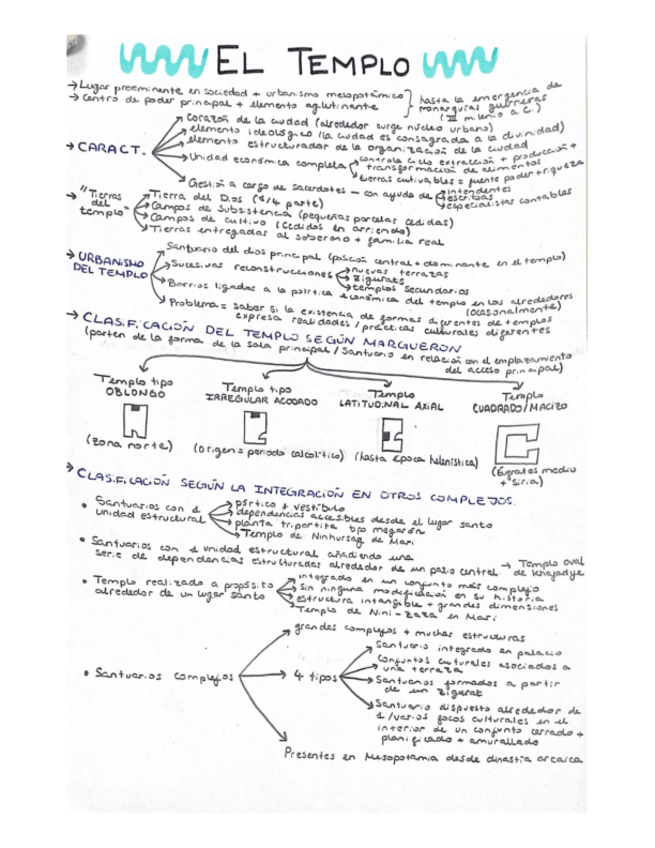 EL TEMPLO
→ Lugar preeminente en sociedad + urbanismo mesopotámico
→ Centro de poder principal + elemento aglutinante
hasta la emergencia de
monarquías guerreras
(III milenio a C.)
→ CARACT.
Corazón de la ciudad (alrededor surge núcleo urbano)
elemento ideológico (la ciudad es consagrada a la divinidad)
elemento estructurador de la organización de la ciudad
Unidad económica completa
controla ciclo extracción + producción +
transformación de alimentos
tierras cultivables = fuente poder + riqueza
Gestión a cargo de sacerdotes — con ayuda de
intendentes
escribas
especialistas contables
→ "Tierras
del
templo"
Tierra del Dios (1/4 parte)
Campos de Subsistencia (pequeñas parcelas cedidas)
Campos de cultivo (cedidos en arriendo)
Tierras entregadas al soberano + familia real
→ URBANISMO
DEL TEMPLO
Santuario del dios principal (posición central + dominante en el templo)
Sucesivas reconstrucciones
nuevas terrazas
zigurats
templos secundarios
Barrios ligados a la política económica del templo en los alrededores
(ocasionalmente)
Problema = saber si la existencia de formas diferentes de templos
expresa realidades / prácticas culturales diferentes
→ CLASIFICACIÓN DEL TEMPLO SEGÚN MARGUERON
(parten de la forma de la sala principal / Santuario en relación con el emplazamiento
del acceso principal)
Templo tipo
OBLONGO
(zona norte)
Templo tipo
IRREGULAR ACODADO
(origen = periodo calcolítico)
Templo
LATITUDINAL AXIAL
(hasta época helenística)
Templo
CUADRADO/MACIZO
(Éufrates medio
+ Siria)
→ CLASIFICACIÓN SEGÚN LA INTEGRACIÓN EN OTROS COMPLEJOS.
• Santuarios con 1
unidad estructural
pórtico + vestíbulo
dependencias accesibles desde el lugar santo
planta tripartita tipo megarón
Templo de Ninhursag de Mari
• Santuarios con 1 unidad estructural añadiendo una
serie de dependencias estructuradas alrededor de un patio central
→ Templo oval
de Khafadye
• Templo realizado a propósito
alrededor de un lugar santo
integrado en un conjunto más complejo
sin ninguna modificación en su historia
estructura intangible + grandes dimensiones
Templo de Nini-Zaza en Mari
• Santuarios complejos
grandes complejos + muchas estructuras
→ 4 tipos
Santuario integrado en palacio
Conjuntos culturales asociados a
una terraza
Santuarios formados a partir
de un zigurat
Santuario dispuesto alrededor de
1/varios focos culturales en el
interior de un conjunto cerrado +
planificado + amurallado
Presentes en Mesopotamia desde dinastía arcaica